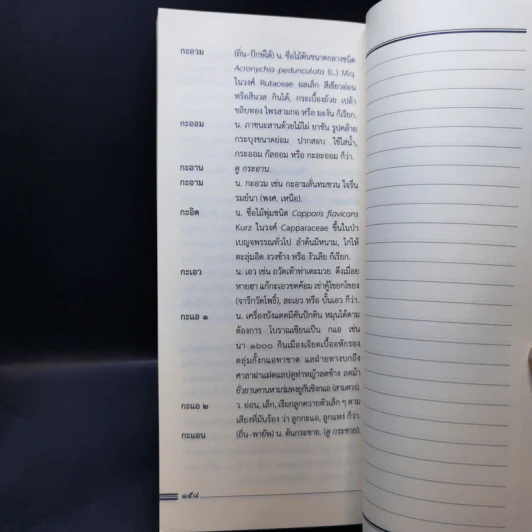 กะอวม (ถิ่น-ปักษ์ใต้) น. ชื่อไม้ต้นขนาดกลางชนิด
Acronychia pedunculata (L.) Miq.
ในวงศ์ Rutaceae ผลเล็ก สีเขียวอ่อน
หรือสีนวล กินได้, กระเบื้องถ้วย เปล้า
ขลิบทอง ไพรสามกอ หรือ มะงัน ก็เรียก.
กะออม น. ภาชนะสานด้วยไม้ไผ่ ยาชัน รูปคล้าย
กระบุงขนาดย่อม ปากสอบ ใช้ใส่น้ำ,
กระออม กัลออม หรือ กะละออม ก็ว่า.
กะอาน ดู กระอาน.
กะอาม น. กะอวม เช่น กะอามลั่นทมชวน ใจรื่น
รมย์นา (พงศ. เหนือ).
กะอิด น. ชื่อไม้พุ่มชนิด Capparis flavicans
Kurz ในวงศ์ Capparaceae ขึ้นในป่า
เบญจพรรณทั่วไป ลำต้นมีหนาม, ไกไห้
ตะลุ่มอิด งวงช้าง หรือ งัวเลีย ก็เรียก.
กะเอว น. เอว เช่น ถวัดเท้าท่าเตะมวย ตึงเมื่อย
หายฮา แก้กะเอวขดค้อม เข่าคู้โขยกโขยง
(จารึกวัดโพธิ์), สะเอว หรือ บั้นเอว ก็ว่า.
กะแอ ๑ น. เครื่องบังแดดมีคันปักดิน หมุนได้ตาม
ต้องการ โบราณเขียนเป็น กแอ เช่น
นา ๑๖๐๐ กินเมืองเจียดเบื้ออหักรอง
ตลุ่มกั้งกแอทาชาด แลฝ่ายทางบกถึง
ศาลาฝาแฝดแลปตูท่าหญ้าลดช้าง ลดม้า
ยั่วยานคานหามร่มหงยูกันชิงกแอ (สามดวง).
กะแอ ๒ ว. อ่อน, เล็ก, เรียกลูกควายตัวเล็ก ๆ ตาม
เสียงที่มันร้อง ว่า ลูกกะแอ, ลูกแหง่ ก็ว่า.
กะแอน (ถิ่น-พายัพ) น. ต้นกระชาย. (ดู กระชาย).
๑๕๘